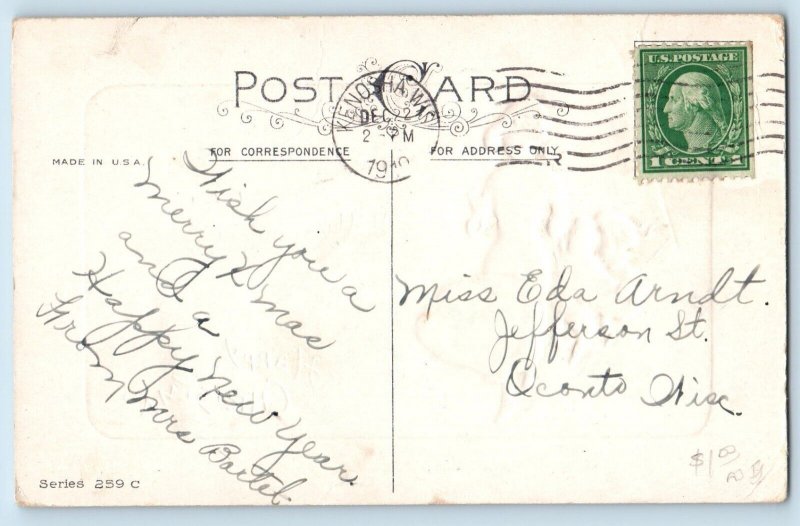 POST CARD
KENOSHA, WIS
DEC 22
2 - PM
U.S. POSTAGE
1 CENT 1
FOR CORRESPONDENCE
FOR ADDRESS ONLY
MADE IN U.S.A.
Wish you a
Merry Xmas
and a
Happy New Year.
From Mrs Bartel
Miss Eda Arndt.
Jefferson St.
Oconto Wisc.
Series 259 C
$1.00